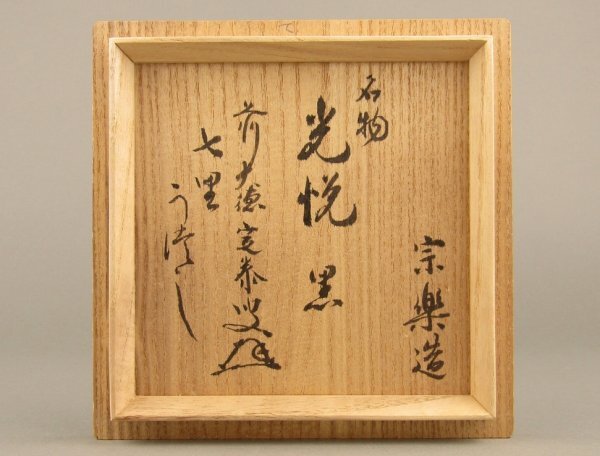 宗樂造
名物
光悦 黒
七里
うつし
前大徳寛泰叟